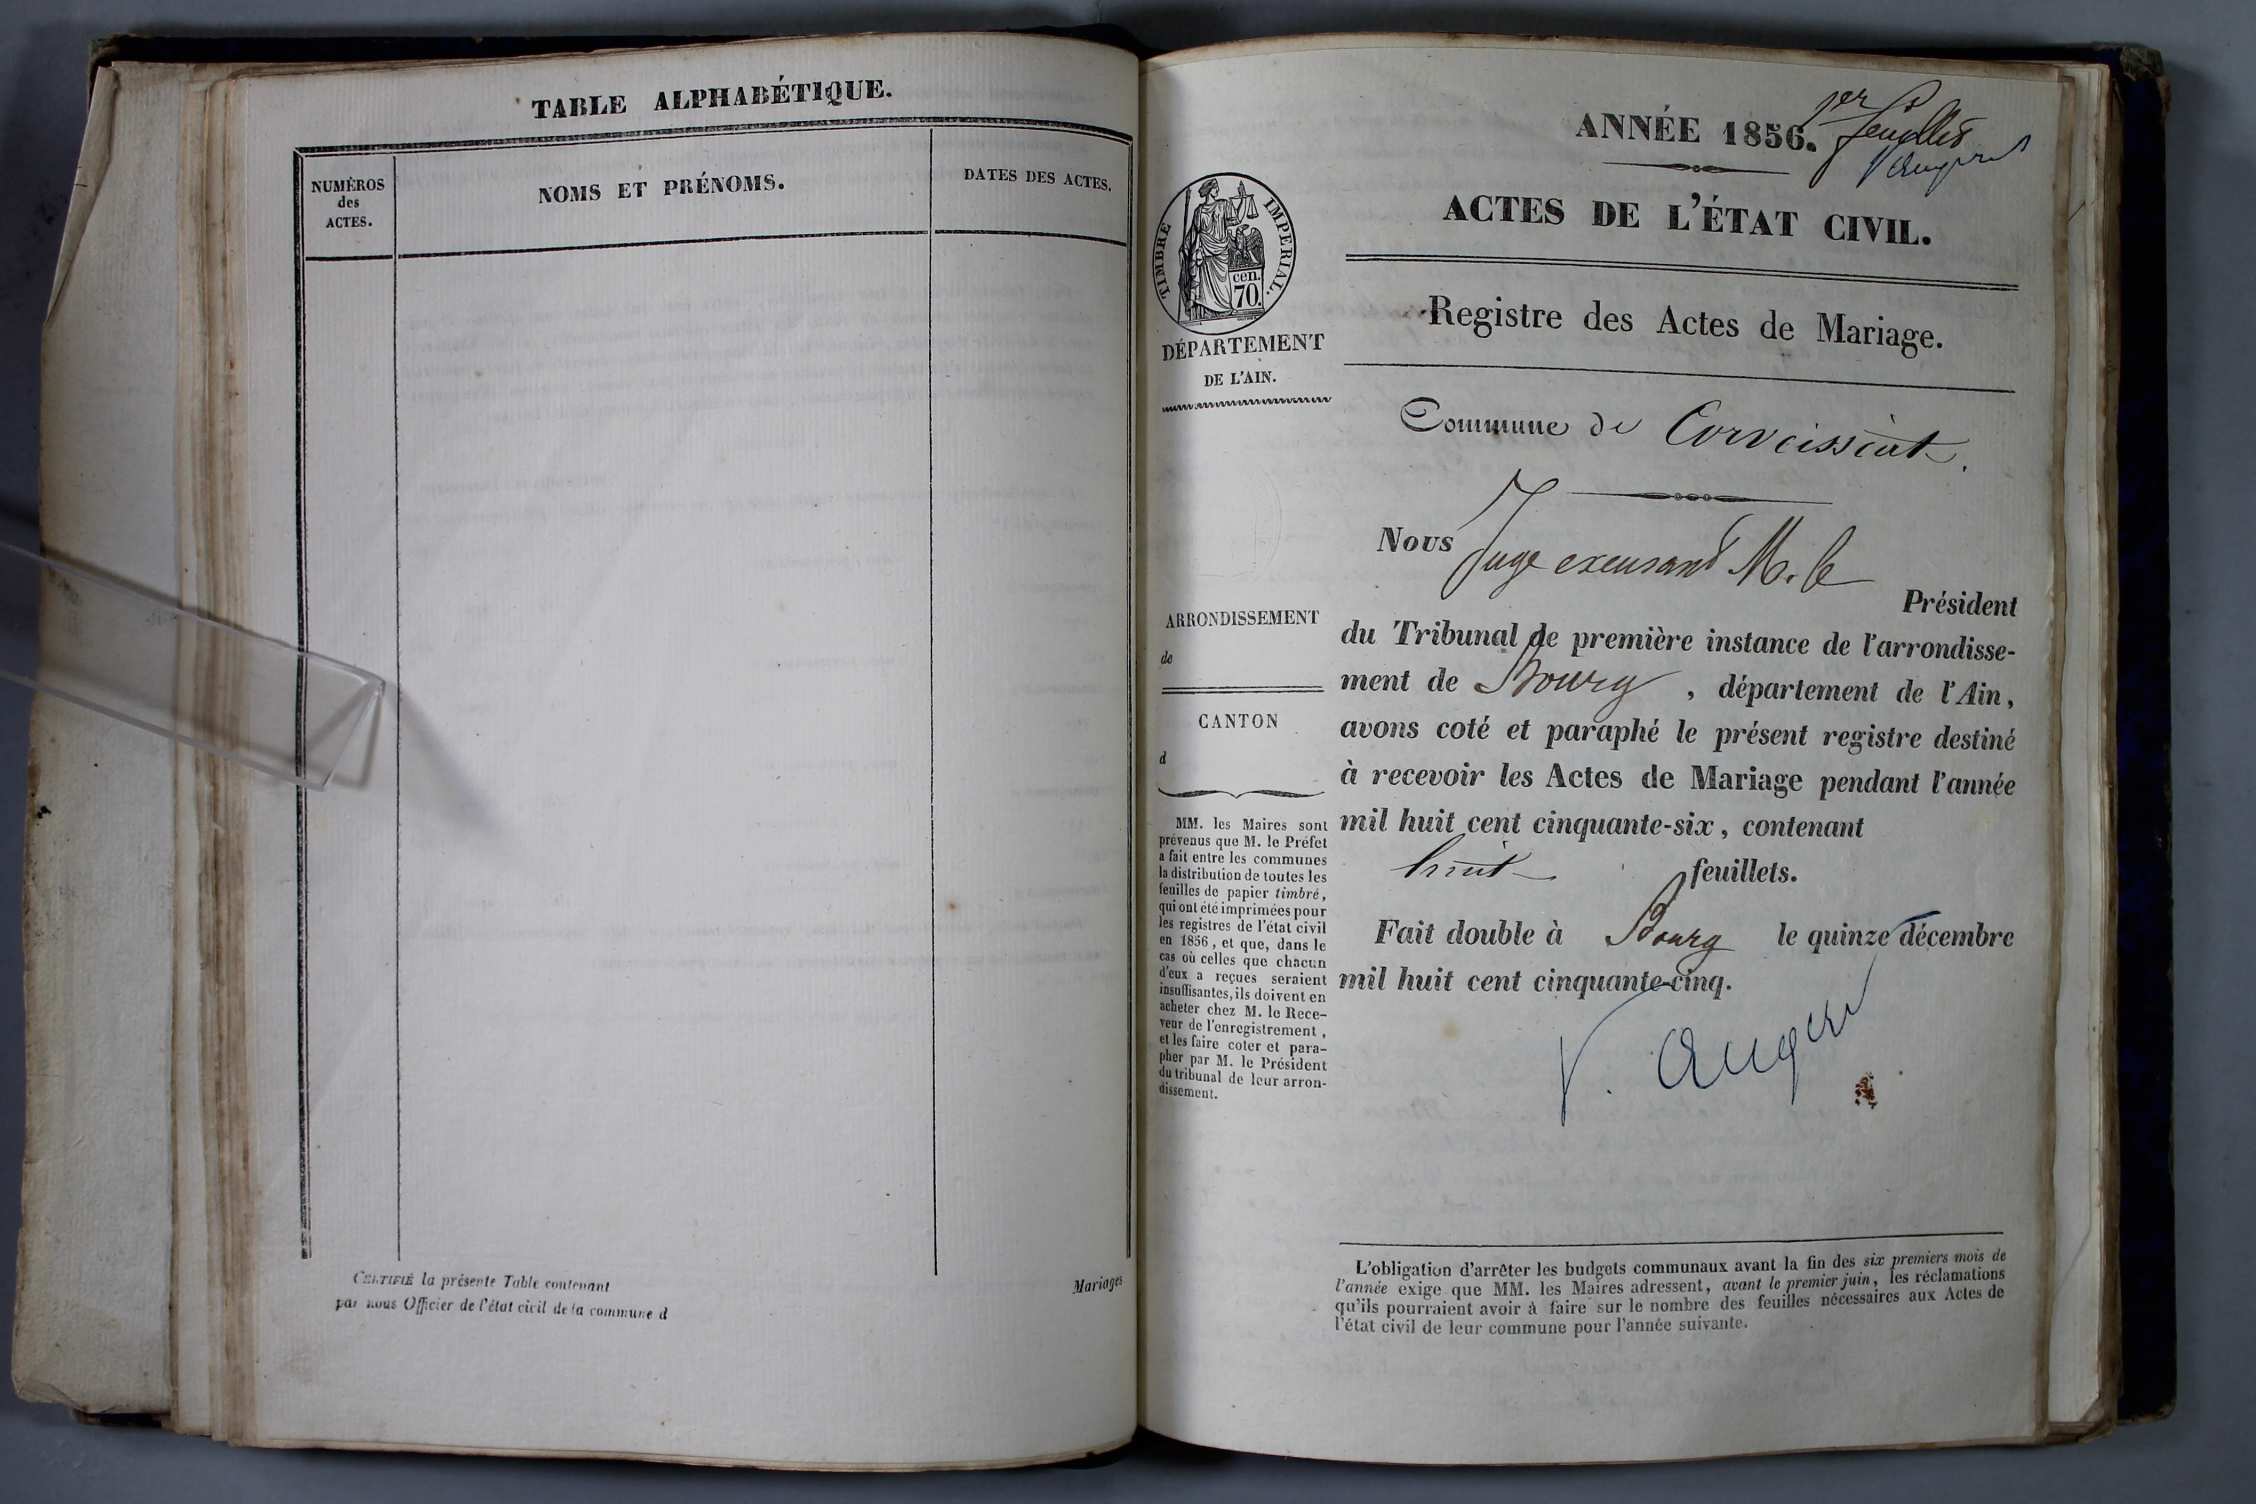 TABLE ALPHABÉTIQUE.
NUMÉROS
des
ACTES.
NOMS ET PRÉNOMS.
DATES DES ACTES.
CERTIFIÉ la présente Table contenant
par nous Officier de l'état civil de la commune d
Mariages
1er feuillet
ANNÉE 1856.
ACTES DE L'ÉTAT CIVIL.
TIMBRE IMPERIAL.
cen.
70.
DÉPARTEMENT
DE L'AIN.
Registre des Actes de Mariage.
Commune de Corveissiat.
Nous Juge excusant M. le
Président
du Tribunal de première instance de l'arrondisse-
ment de Bourg, département de l'Ain,
avons coté et paraphé le présent registre destiné
à recevoir les Actes de Mariage pendant l'année
mil huit cent cinquante-six, contenant
huit feuillets.
Fait double à Bourg le quinze décembre
mil huit cent cinquante-cinq.
ARRONDISSEMENT
de
CANTON
d
MM. les Maires sont
prévenus que M. le Préfet
a fait entre les communes
la distribution de toutes les
feuilles de papier timbré,
qui ont été imprimées pour
les registres de l'état civil
en 1856, et que, dans le
cas où celles que chacun
d'eux a reçues seraient
insuffisantes, ils doivent en
acheter chez M. le Rece-
veur de l'enregistrement,
et les faire coter et para-
pher par M. le Président
du tribunal de leur arron-
dissement.
L'obligation d'arrêter les budgets communaux avant la fin des six premiers mois de
l'année exige que MM. les Maires adressent, avant le premier juin, les réclamations
qu'ils pourraient avoir à faire sur le nombre des feuilles nécessaires aux Actes de
l'état civil de leur commune pour l'année suivante.